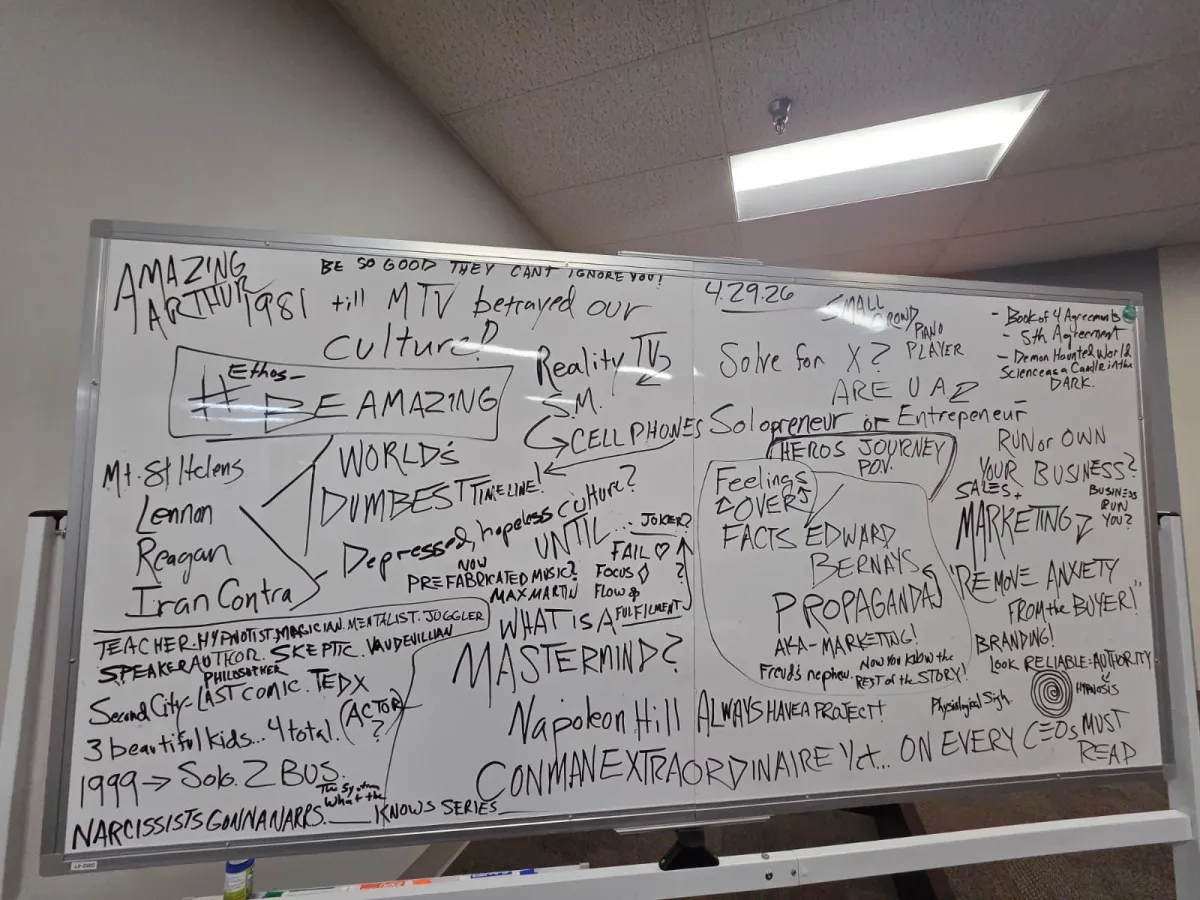 AMAZING
ARTHUR
BE SO GOOD THEY CANT IGNORE YOU!
1981 till MTV betrayed our
culture?
Ethos-
# BE AMAZING
Mt. St Helens
Lennon
Reagan
Iran Contra
WORLD's
DUMBEST TIMELINE!
Reality TV
S.M.
CELL PHONES
Depressed, hopeless culture?
UNTIL...
JOKER?
NOW
PREFABRICATED MUSIC?
MAX MARTIN
FAIL
FOCUS
Flow
?
FULFILMENT
TEACHER. HYPNOTIST. MAGICIAN. MENTALIST. JUGGLER
SPEAKER AUTHOR. SKEPTIC. VAUDEVILLIAN
PHILOSOPHER
Second City- LAST COMIC. TEDX
(ACTOR
?)
3 beautiful kids... 4 total.
1999 → Solo. 2 BUS.
The System
What the
NARCISSISTS GONNA NARRS. KNOWS SERIES
WHAT IS A
MASTERMIND?
Napoleon Hill
CONMAN EXTRAORDINAIRE Yet... ON EVERY CEOs MUST
READ
4.29.26
SMALL
CROWD
PIANO
PLAYER
Solve for X?
ARE U A
Solopreneur or Entrepeneur
HEROS JOURNEY
POV.
Feelings
OVER
FACTS EDWARD
BERNAYS
PROPAGANDA
AKA- MARKETING!
Freud's nephew.
NOW YOU KNOW THE
REST of the STORY!
ALWAYS HAVE A PROJECT!
- Book of 4 Agreements
- 5th Agreement
- Demon Haunted World
Science as a Candle in the
DARK.
RUN or OWN
YOUR BUSINESS?
BUSINESS
RUN
YOU?
SALES +
MARKETING
"REMOVE ANXIETY
FROM the BUYER!"
BRANDING!
LOOK RELIABLE = AUTHORITY
HYPNOSIS
Physiological Sigh.